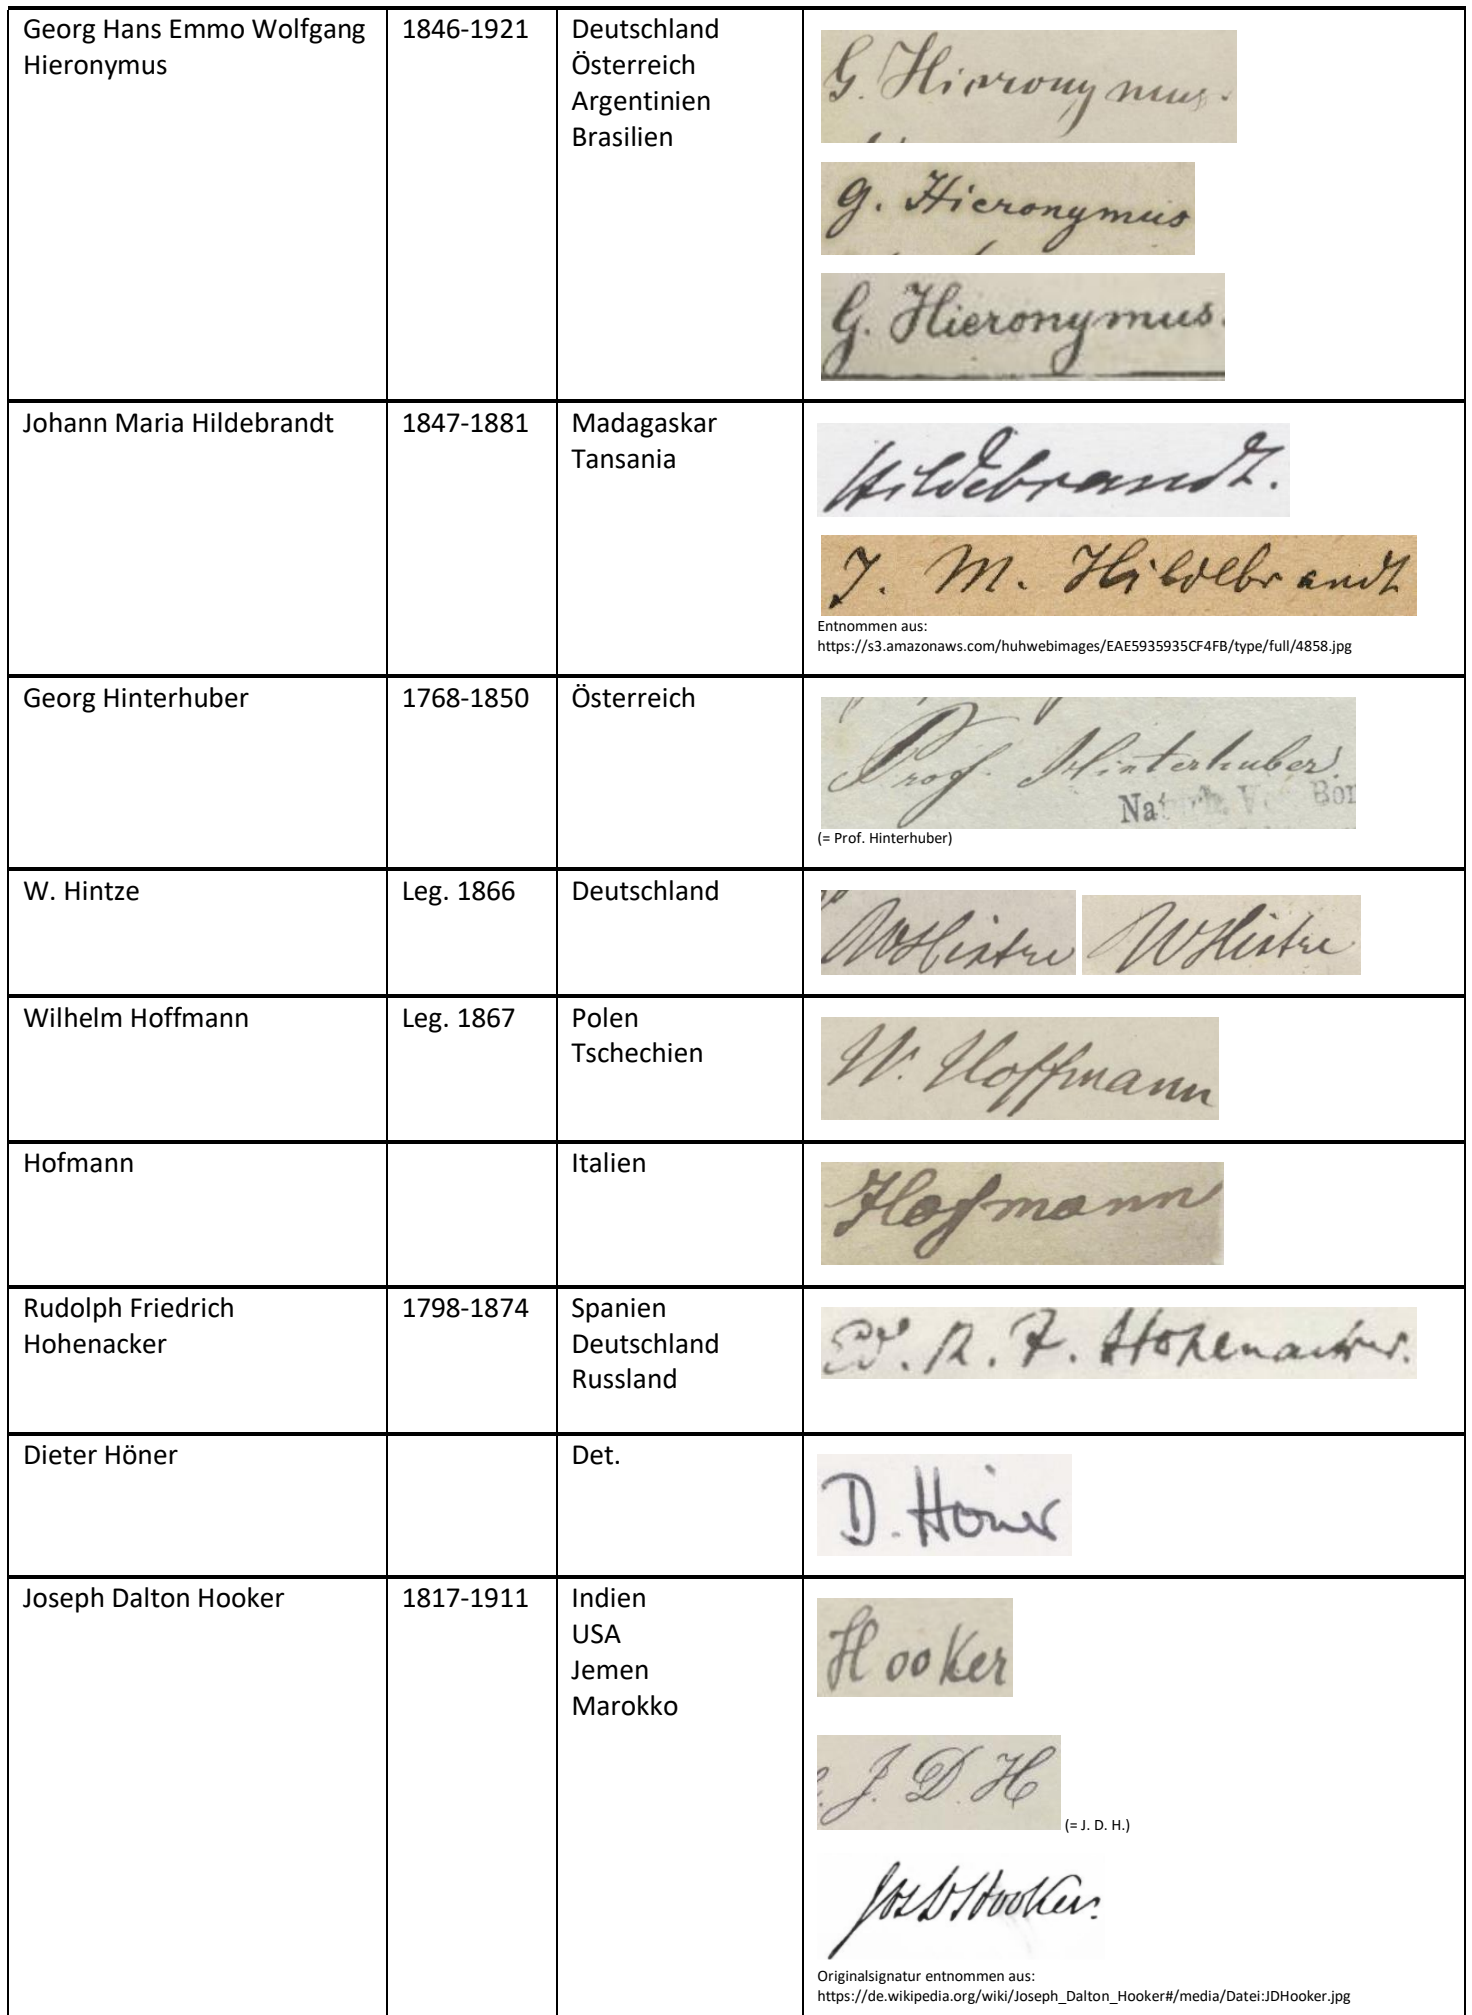 Georg Hans Emmo Wolfgang
Hieronymus
1846-1921
Deutschland
Österreich
Argentinien
Brasilien
G. Hieronymus.
G. Hieronymus
G. Hieronymus.
Johann Maria Hildebrandt
1847-1881
Madagaskar
Tansania
Hildebrandt.
J. M. Hildebrandt
Entnommen aus:
https://s3.amazonaws.com/huhwebimages/EAE5935935CF4FB/type/full/4858.jpg
Georg Hinterhuber
1768-1850
Österreich
Prof. Hinterhuber.
(= Prof. Hinterhuber)
W. Hintze
Leg. 1866
Deutschland
WHintze WHintze
Wilhelm Hoffmann
Leg. 1867
Polen
Tschechien
W. Hoffmann
Hofmann
Italien
Hofmann
Rudolph Friedrich
Hohenacker
1798-1874
Spanien
Deutschland
Russland
Ed. R. F. Hohenacker.
Dieter Höner
Det.
D. Höner
Joseph Dalton Hooker
1817-1911
Indien
USA
Jemen
Marokko
Hooker
J. D. H
(= J. D. H.)
Jos D Hooker.
Originalsignatur entnommen aus:
https://de.wikipedia.org/wiki/Joseph_Dalton_Hooker#/media/Datei:JDHooker.jpg